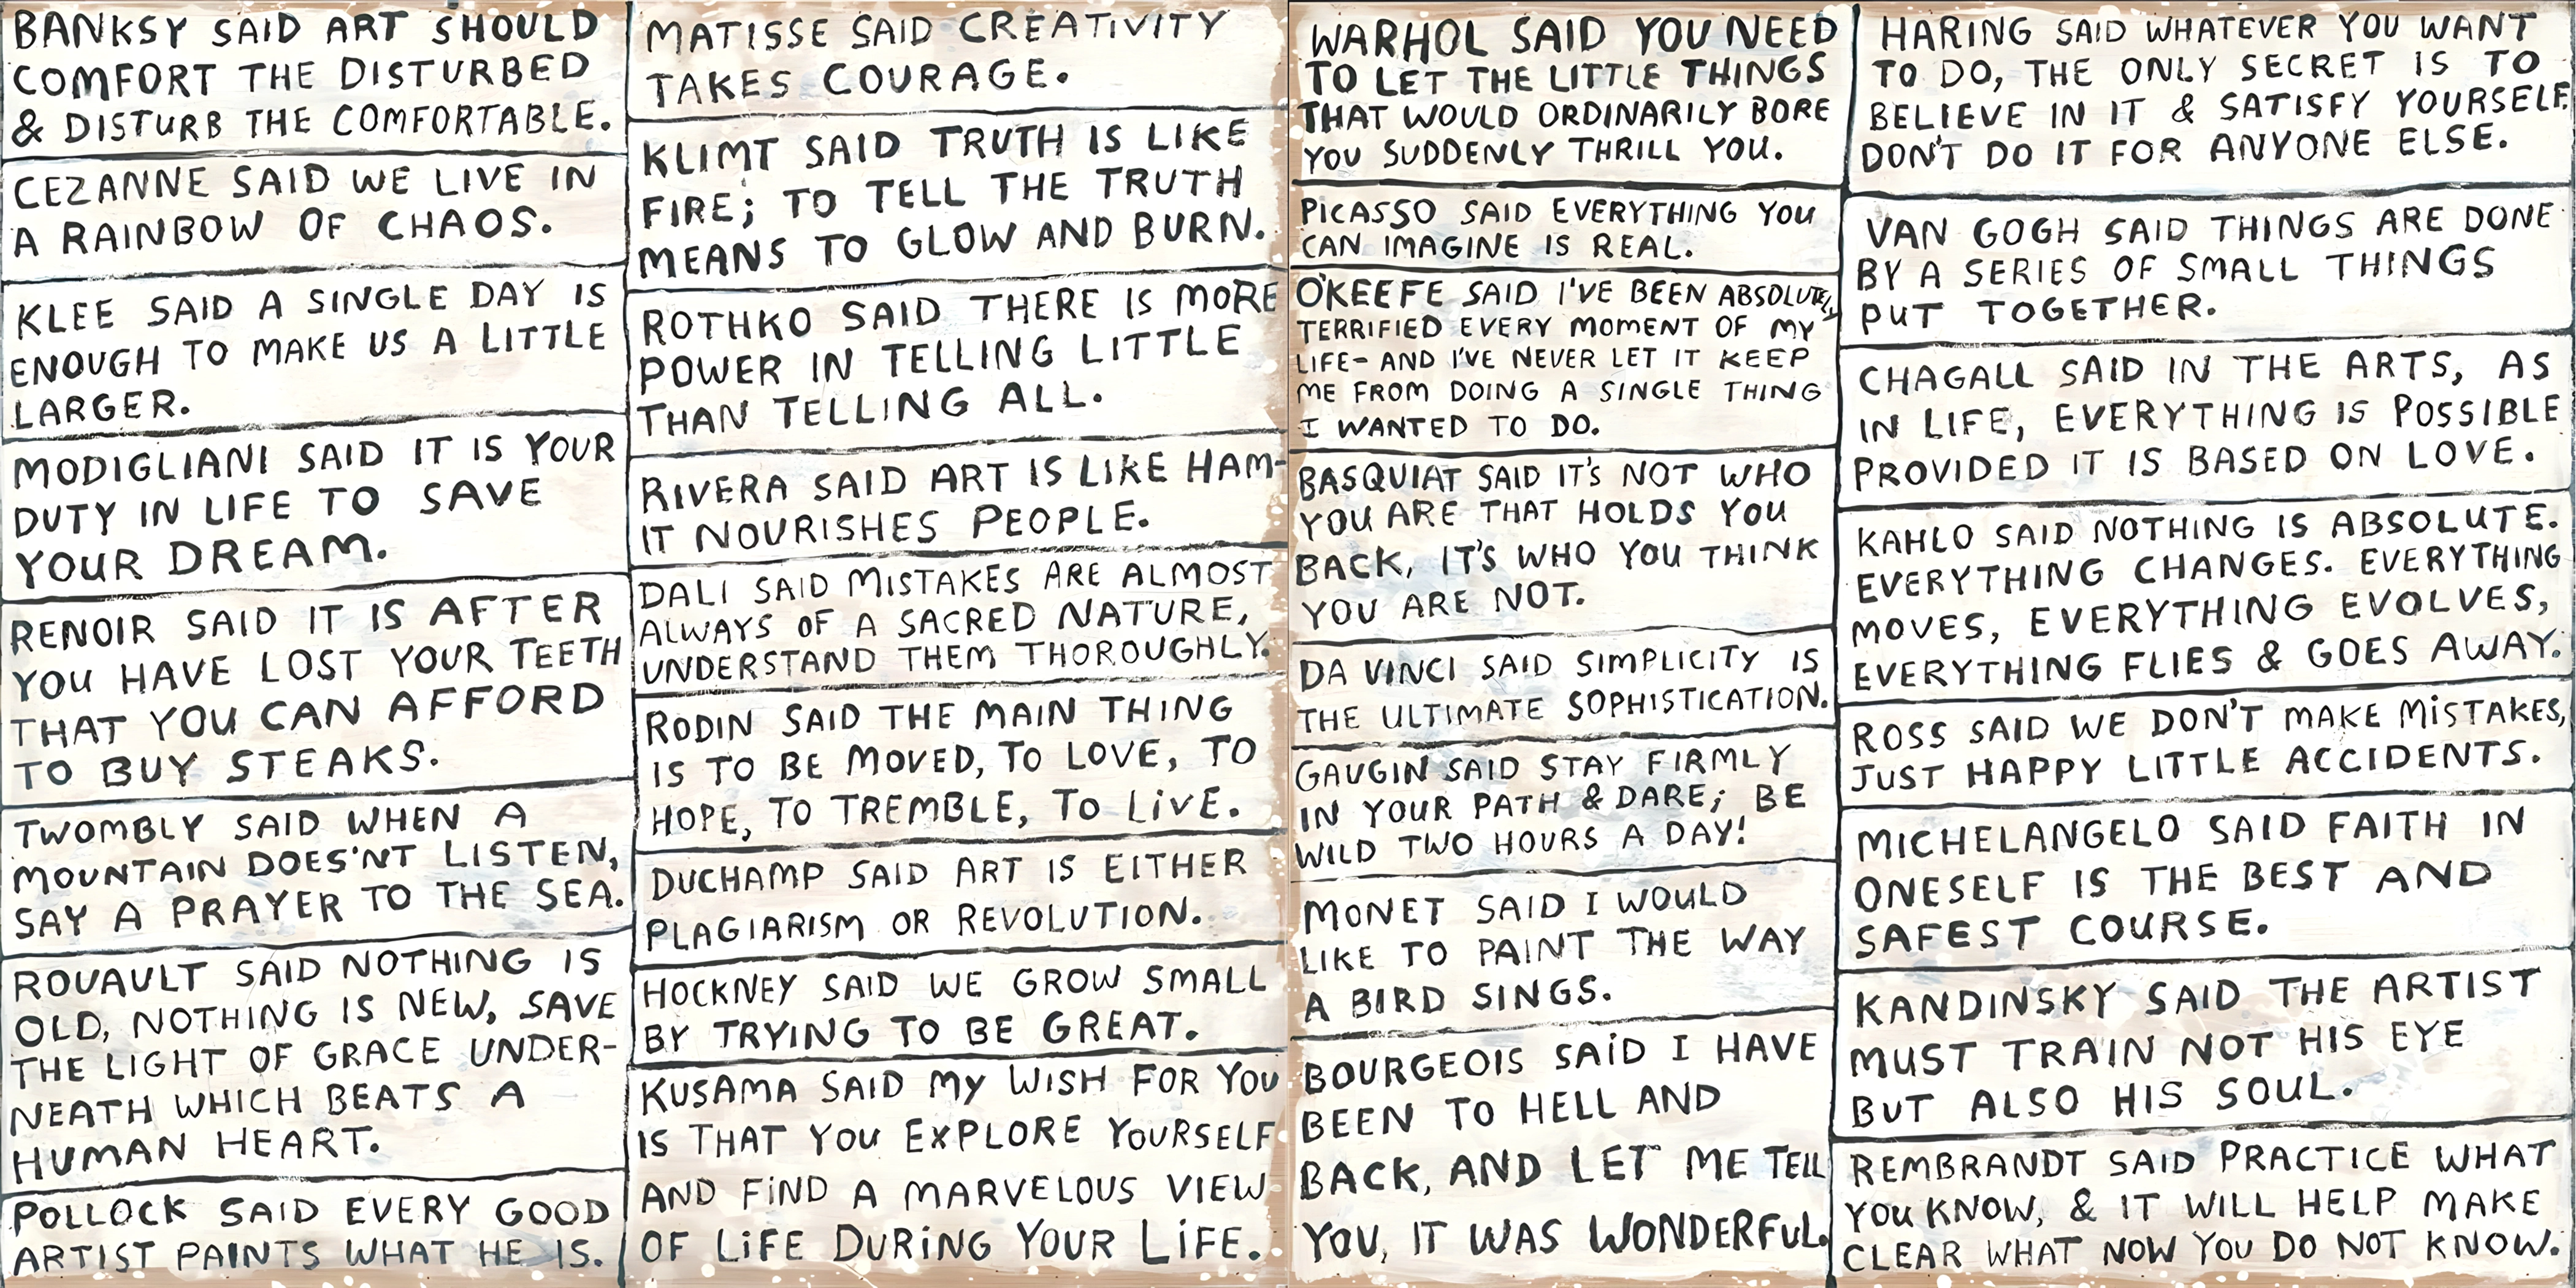 BANKSY SAID ART SHOULD
COMFORT THE DISTURBED
& DISTURB THE COMFORTABLE.
CEZANNE SAID WE LIVE IN
A RAINBOW OF CHAOS.
KLEE SAID A SINGLE DAY IS
ENOUGH TO MAKE US A LITTLE
LARGER.
MODIGLIANI SAID IT IS YOUR
DUTY IN LIFE TO SAVE
YOUR DREAM.
RENOIR SAID IT IS AFTER
YOU HAVE LOST YOUR TEETH
THAT YOU CAN AFFORD
TO BUY STEAKS.
TWOMBLY SAID WHEN A
MOUNTAIN DOES'NT LISTEN,
SAY A PRAYER TO THE SEA.
ROUAULT SAID NOTHING IS
OLD, NOTHING IS NEW, SAVE
THE LIGHT OF GRACE UNDER-
NEATH WHICH BEATS A
HUMAN HEART.
POLLOCK SAID EVERY GOOD
ARTIST PAINTS WHAT HE IS.
MATISSE SAID CREATIVITY
TAKES COURAGE.
KLIMT SAID TRUTH IS LIKE
FIRE; TO TELL THE TRUTH
MEANS TO GLOW AND BURN.
ROTHKO SAID THERE IS MORE
POWER IN TELLING LITTLE
THAN TELLING ALL.
RIVERA SAID ART IS LIKE HAM-
IT NOURISHES PEOPLE.
DALI SAID MISTAKES ARE ALMOST
ALWAYS OF A SACRED NATURE,
UNDERSTAND THEM THOROUGHLY.
RODIN SAID THE MAIN THING
IS TO BE MOVED, TO LOVE, TO
HOPE, TO TREMBLE, TO LIVE.
DUCHAMP SAID ART IS EITHER
PLAGIARISM OR REVOLUTION.
HOCKNEY SAID WE GROW SMALL
BY TRYING TO BE GREAT.
KUSAMA SAID MY WISH FOR YOU
IS THAT YOU EXPLORE YOURSELF
AND FIND A MARVELOUS VIEW
OF LIFE DURING YOUR LIFE.
WARHOL SAID YOU NEED
TO LET THE LITTLE THINGS
THAT WOULD ORDINARILY BORE
YOU SUDDENLY THRILL YOU.
PICASSO SAID EVERYTHING YOU
CAN IMAGINE IS REAL.
O'KEEFE SAID I'VE BEEN ABSOLUTELY
TERRIFIED EVERY MOMENT OF MY
LIFE- AND I'VE NEVER LET IT KEEP
ME FROM DOING A SINGLE THING
I WANTED TO DO.
BASQUIAT SAID IT'S NOT WHO
YOU ARE THAT HOLDS YOU
BACK, IT'S WHO YOU THINK
YOU ARE NOT.
DA VINCI SAID SIMPLICITY IS
THE ULTIMATE SOPHISTICATION.
GAUGIN SAID STAY FIRMLY
IN YOUR PATH & DARE; BE
WILD TWO HOURS A DAY!
MONET SAID I WOULD
LIKE TO PAINT THE WAY
A BIRD SINGS.
BOURGEOIS SAID I HAVE
BEEN TO HELL AND
BACK, AND LET ME TELL
YOU, IT WAS WONDERFUL.
HARING SAID WHATEVER YOU WANT
TO DO, THE ONLY SECRET IS TO
BELIEVE IN IT & SATISFY YOURSELF.
DON'T DO IT FOR ANYONE ELSE.
VAN GOGH SAID THINGS ARE DONE
BY A SERIES OF SMALL THINGS
PUT TOGETHER.
CHAGALL SAID IN THE ARTS, AS
IN LIFE, EVERYTHING IS POSSIBLE
PROVIDED IT IS BASED ON LOVE.
KAHLO SAID NOTHING IS ABSOLUTE.
EVERYTHING CHANGES. EVERYTHING
MOVES, EVERYTHING EVOLVES,
EVERYTHING FLIES & GOES AWAY.
ROSS SAID WE DON'T MAKE MISTAKES,
JUST HAPPY LITTLE ACCIDENTS.
MICHELANGELO SAID FAITH IN
ONESELF IS THE BEST AND
SAFEST COURSE.
KANDINSKY SAID THE ARTIST
MUST TRAIN NOT HIS EYE
BUT ALSO HIS SOUL.
REMBRANDT SAID PRACTICE WHAT
YOU KNOW, & IT WILL HELP MAKE
CLEAR WHAT NOW YOU DO NOT KNOW.